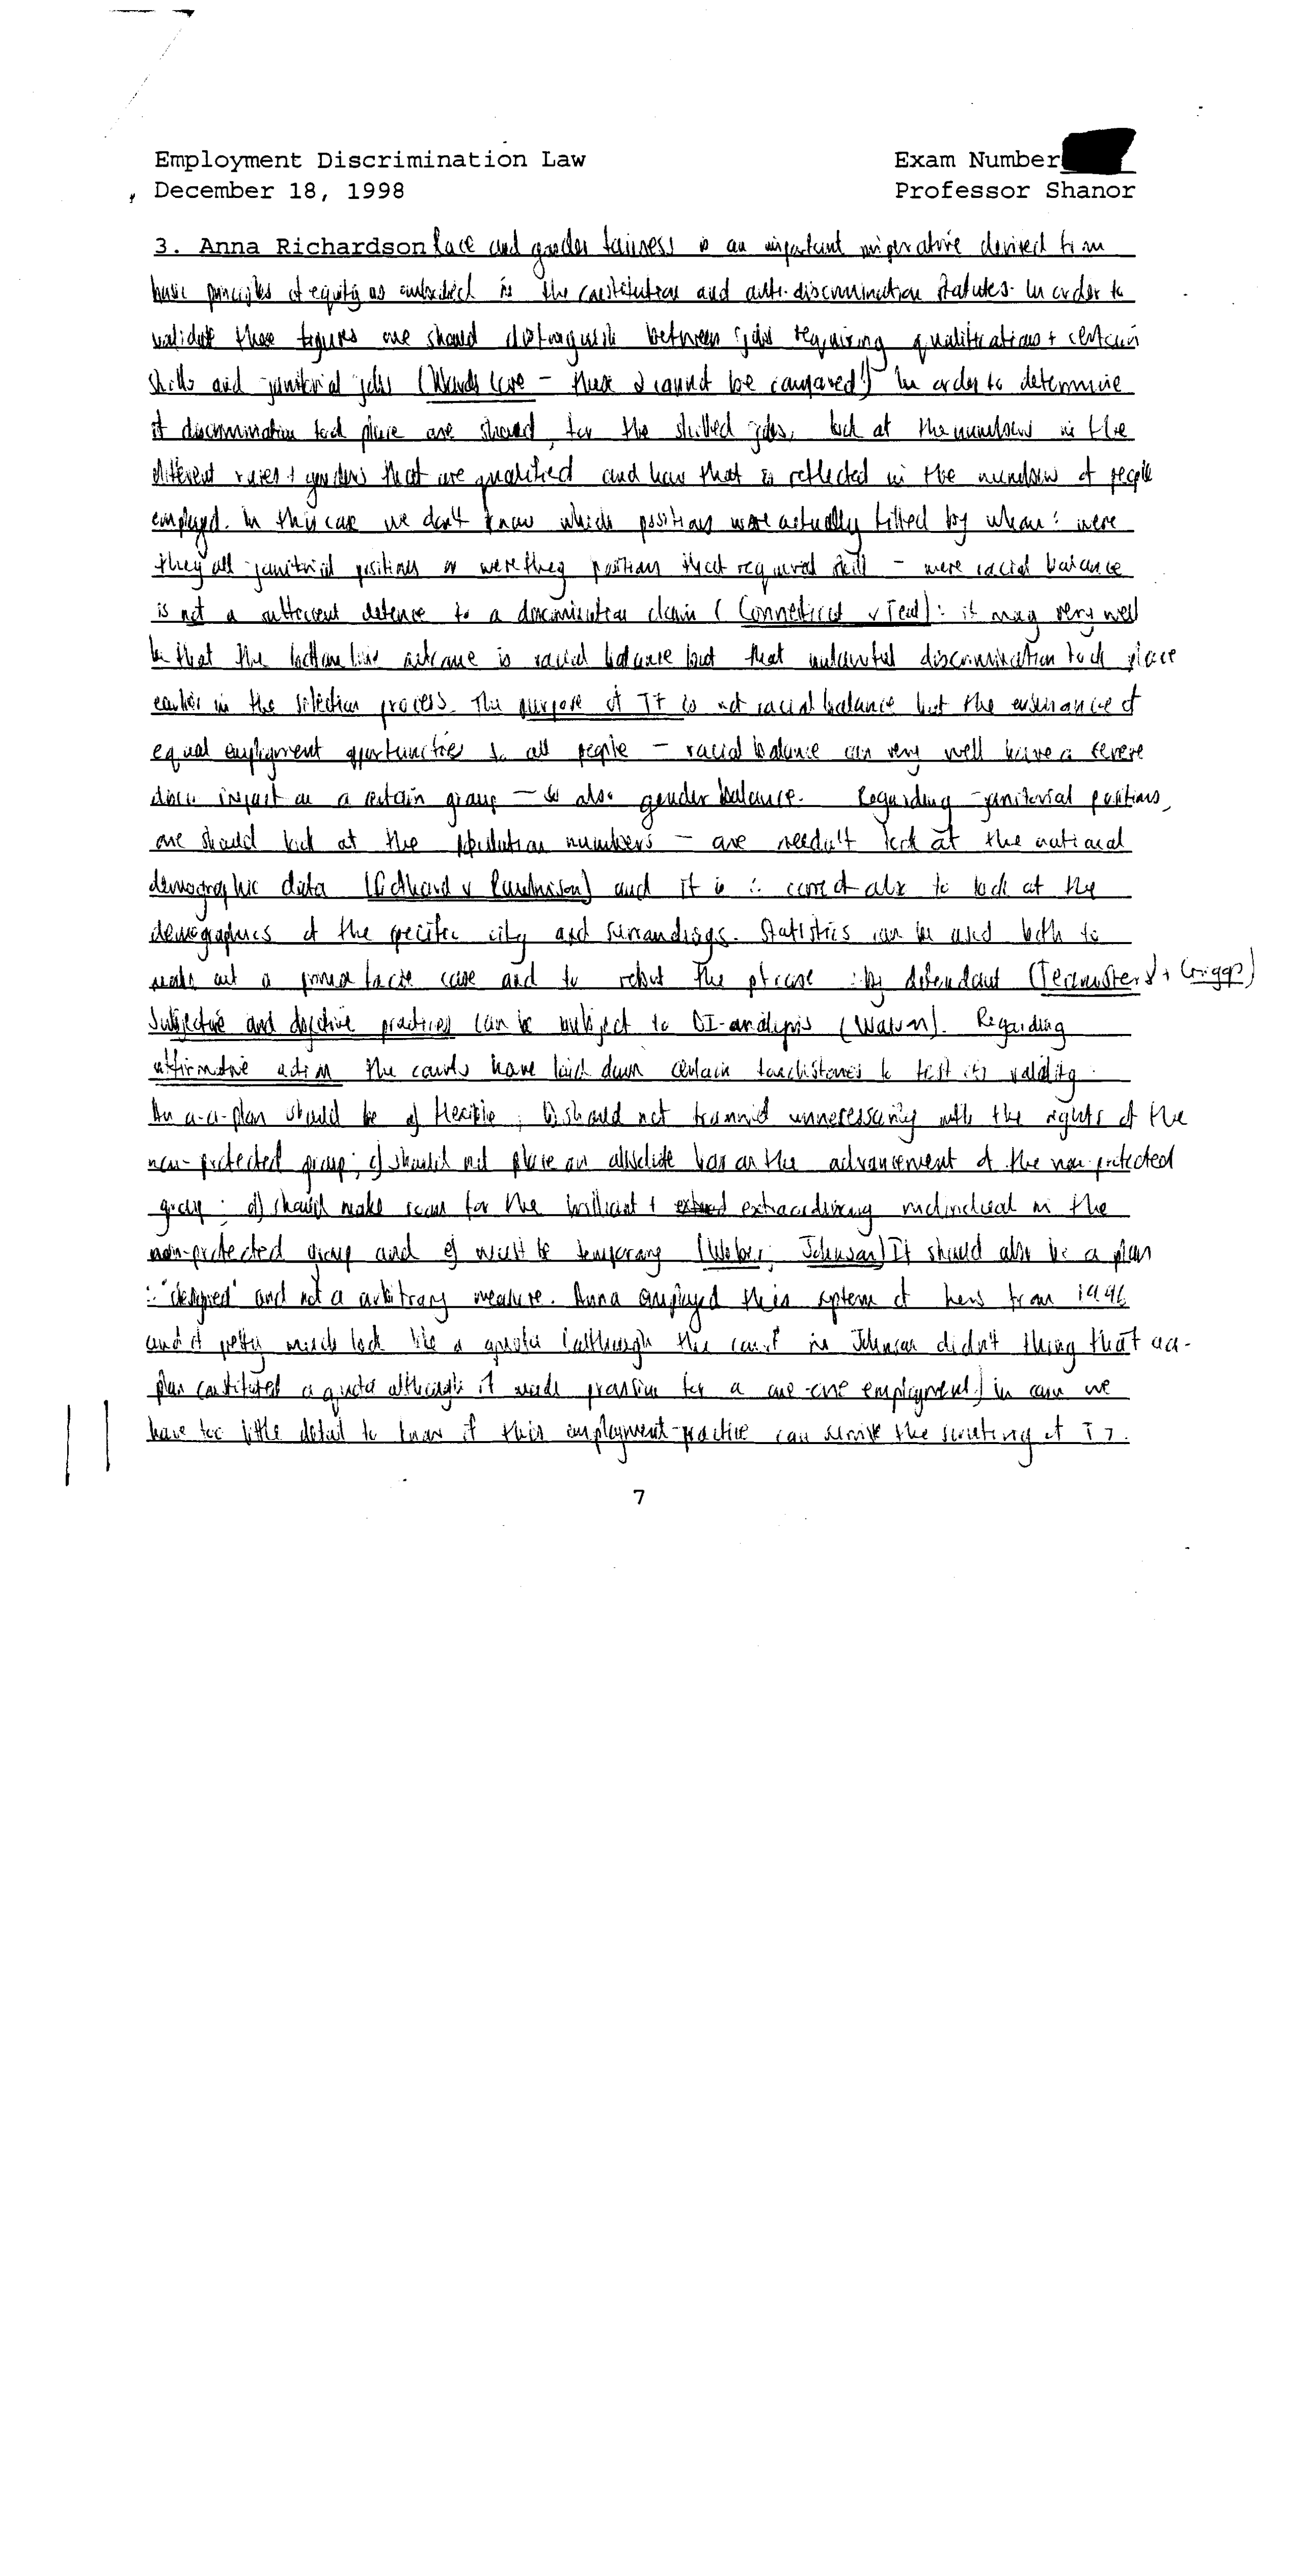 Employment Discrimination Law Exam Number
December 18, 1998 Professor Shanor
3. Anna Richardson Race and gender fairness is an important imperative derived from
basic principles of equity as embodied in the constitution and anti-discrimination statutes. In order to
validate these figures one should distinguish between jobs requiring qualifications + certain
skills and janitorial jobs (Wards Cove - these 2 cannot be compared!) In order to determine
if discrimination took place one should, for the skilled jobs, look at the numbers in the
different races + genders that are qualified and how that is reflected in the numbers of people
employed. In this case we don't know which positions were actually filled by whom: were
they all janitorial positions or were they positions that required skill - mere racial balance
is not a sufficient defence to a discrimination claim (Connecticut v Teal): it may very well
be that the bottom line outcome is racial balance but that unlawful discrimination took place
earlier in the selection process. The purpose of T7 is not racial balance but the ensurance of
equal employment opportunities to all people - racial balance can very well have a severe
disc. impact on a certain group - so also gender balance. Regarding janitorial positions,
one should look at the population numbers - one needn't look at the national
demographic data (Dothard v Rawlinson) and it is ∴ correct also to look at the
demographics of the specific city and surroundings. Statistics can be used both to
make out a prima facie case and to rebut the pf case by defendant (Teamsters + Griggs)
Subjective and objective practices can be subject to DI-analysis (Watson). Regarding
affirmative action the courts have laid down certain touchstones to test its validity.
An a-a-plan should be a) flexible; b) should not trammel unnecessarily with the rights of the
non-protected group; c) should not place an absolute bar on the advancement of the non-protected
group; d) should make room for the brilliant + extraordinary individual in the
non-protected group and e) must be temporary (Weber; Johnson) It should also be a plan
∴ "designed" and not a arbitrary measure. Anna employed this system of hers from 1996
and it pretty much look like a quota (although the court in Johnson didn't thing that aa-
plan constituted a quota although it made provision for a one-one employment) in casu we
have too little detail to know if this employment-practice can survive the scrutiny of T7.
7